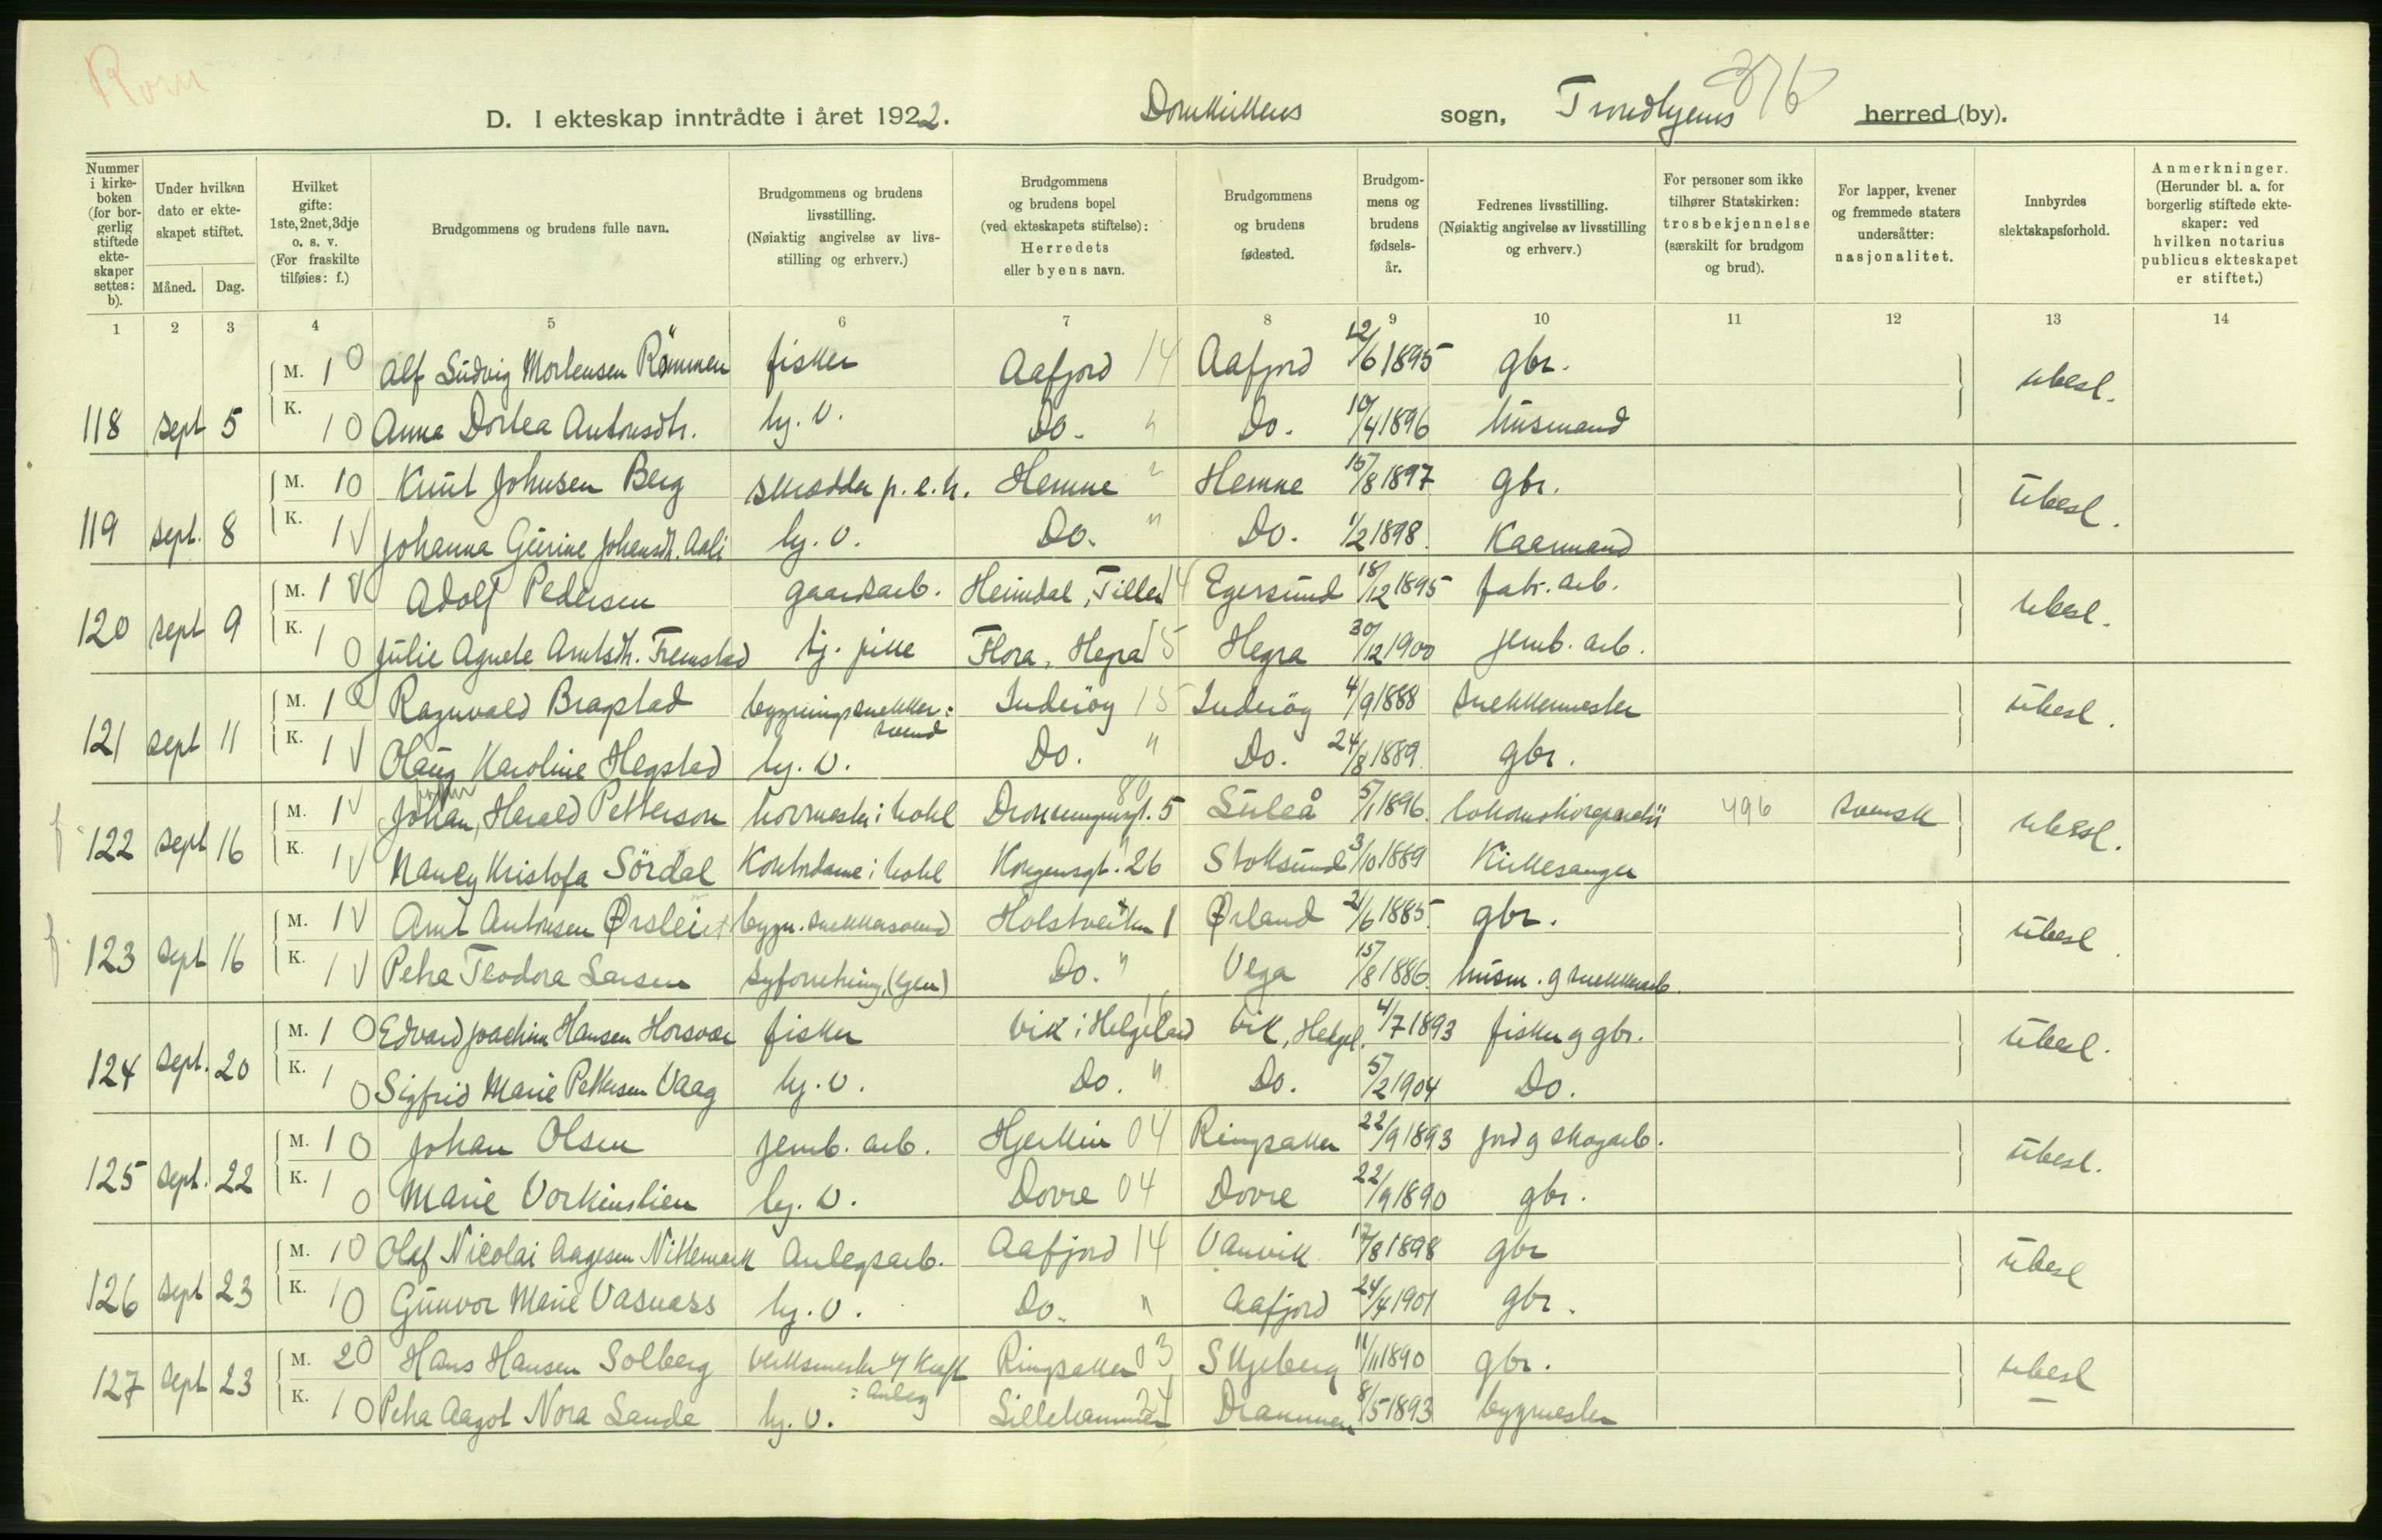 Rom
D. I ekteskap inntrådte i året 1922. Domkirkens sogn, Trondhjems 376 herred (by).
Nummer i kirke-boken (for bor-gerlig stiftede ekte-skaper settes: b).
Under hvilken dato er ekte-skapet stiftet.
Måned. Dag.
Hvilket gifte: 1ste, 2net, 3dje o. s. v. (For fraskilte tilføies: f.)
Brudgommens og brudens fulle navn.
Brudgommens og brudens livsstilling. (Nøiaktig angivelse av livs-stilling og erhverv.)
Brudgommens og brudens bopel (ved ekteskapets stiftelse): Herredets eller byens navn.
Brudgommens og brudens fødested.
Brudgom-mens og brudens fødsels-år.
Fedrenes livsstilling. (Nøiaktig angivelse av livsstilling og erhverv.)
For personer som ikke tilhører Statskirken: trosbekjennelse (særskilt for brudgom og brud).
For lapper, kvener og fremmede staters undersåtter: nasjonalitet.
Innbyrdes slektskapsforhold.
Anmerkninger. (Herunder bl. a. for borgerlig stiftede ekte-skaper: ved hvilken notarius publicus ekteskapet er stiftet.)
1 2 3 4 5 6 7 8 9 10 11 12 13 14
M. 1 0 Alf Ludvig Mortensen Rømmen fisker Aafjord 14 Aafjord 12/6 1895 gbr. ubesl.
118 sept 5 K. 1 0 Anna Dortea Antonsdtr. hj. v. Do. " Do. 10/4 1896 husmand
M. 1 0 Knut Johnsen Berg skrædder p. e. h. Hemne " Hemne 15/8 1897 gbr. ubesl.
119 sept. 8 K. 1 V Johanna Gurine Johansdt. Aali hj. v. Do. " Do. 1/2 1898. Kaarmand
M. 1 V Adolf Pedersen gaardsarb. Heimdal, Tiller 14 Egersund 18/12 1895 fabr. arb. ubesl.
120 sept 9 K. 1 0 Julie Agnete Arntsdtr. Fremstad tj. pike Flora, Hegra 15 Hegra 30/12 1900 jernb. arb.
M. 1 0 Ragnvald Bragstad bygningssnekker: svend Inderöy 15 Inderöy 4/9 1888 snekkermester ubesl.
121 sept 11 K. 1 V Olaug Karoline Hegstad hj. v. Do. " Do. 24/8 1889. gbr.
f. M. 1 V Johan Harald Petterson hovmester i hotel Dronningensgt. 5 80 Luleå 5/1 1896. lokomotivreparatør 496 svensk ubesl.
122 sept 16 K. 1 V Nancy Kristofa Sördal Kontordame i hotel Kongensgt. 26 Stoksund 3/10 1889 Kirkesanger
f. M. 1 V Arnt Antonsen Ørsleit bygn. snekkersvend Holstveiten 1 Ørland 21/6 1885 gbr. ubesl.
123 sept 16 K. 1 V Petra Teodora Larsen syforretning, (egen) Do. " Vega 15/8 1886. husm. og snekkerarb.
M. 1 0 Edvard Joachim Hansen Horsvær fisker Vik i Helgeland 16 Vik, Helgel. 4/7 1893 fisker og gbr. ubesl.
124 sept. 20 K. 1 0 Sigfrid Marie Pettersen Vaag hj. v. Do. " Do. 5/2 1904 Do.
M. 1 0 Johan Olsen jernb. arb. Hjerkin 04 Ringsaker 22/9 1893 jord og skogarb. ubesl.
125 sept. 22 K. 1 0 Marie Vorkinslien hj. v. Dovre 04 Dovre 22/9 1890 gbr.
M. 1 0 Olaf Nicolai Aagesen Nittemark Anlegsarb. Aafjord 14 Vanvik 17/8 1898 gbr ubesl
126 sept 23 K. 1 0 Gunvor Marie Vasnæss hj. v. Do. " Aafjord 24/4 1901 gbr.
M. 2 0 Hans Hansen Solberg verksmester v/ Kraft: anleg Ringsaker 03 Skjeberg 11/11 1890 gbr. ubesl
127 sept 23 K. 1 0 Petra Aagot Nora Sande hj. v. Lillehammer 24 Drammen 8/5 1893 bygmester